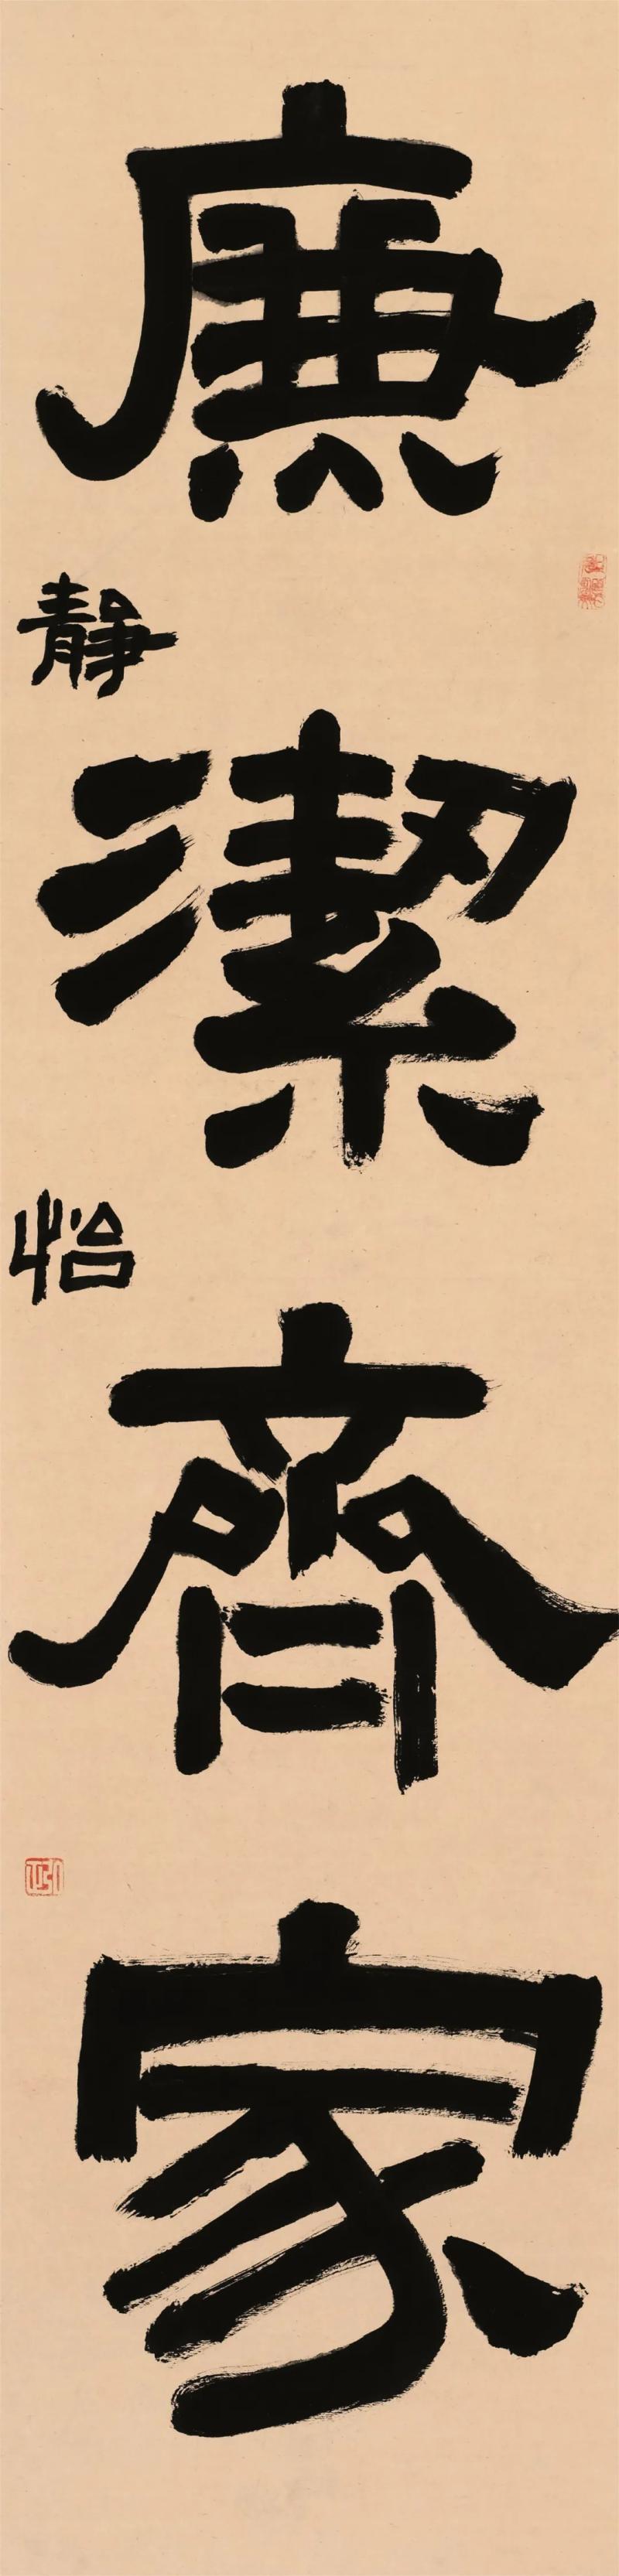 廉潔齊家
靜怡